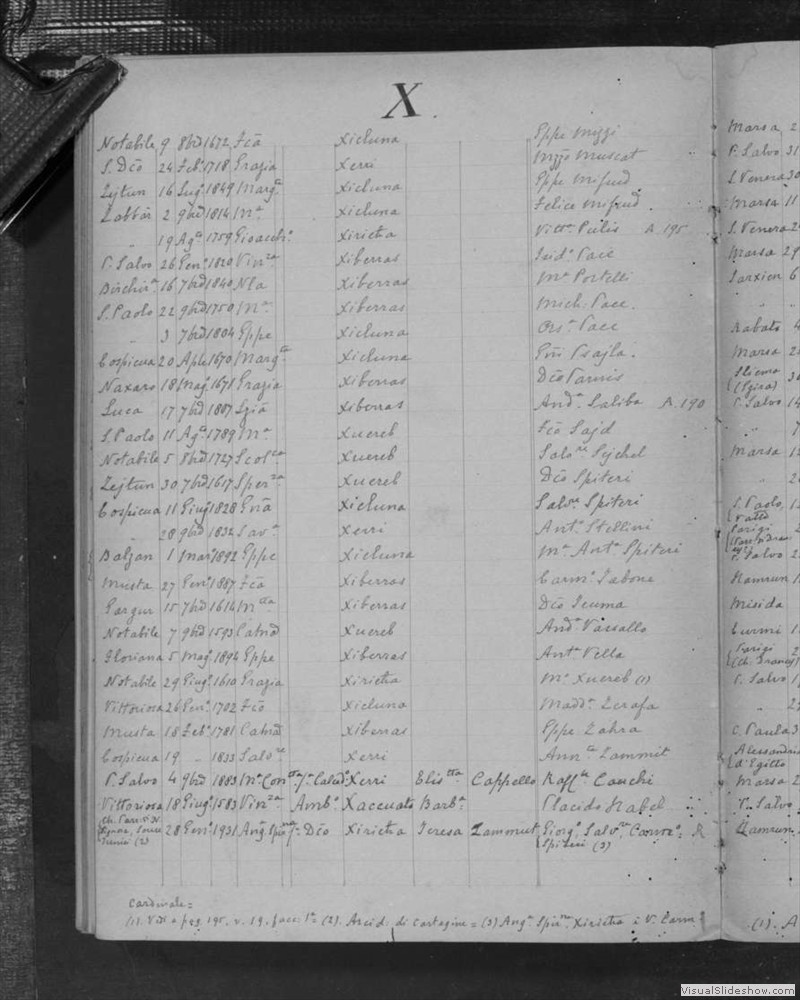 X.
Notabile 9 8bre 1672 Fca Xicluna Gppe Mizzi
S. Dco 24 Feb. 1718 Grazia Xerri Mzzo Muscat
Zejtun 16 Lug. 1849 Marg.ta Xicluna Gppe Mifsud
Zabbar 2 9bre 1814 Ma. Xicluna Felice Mifsud
" 19 Ago 1759 Gioacch.o Xiricha Vitt.a Pulis A 195
P. Salvo 26 Gen. 1820 Vin.za Xiberras Isid.o Pace
Birchir.a 16 7bre 1840 Nla Xiberras Ma. Portelli
S. Paolo 22 9bre 1750 Ma. Xiberras Mich. Pace.
" 3 7bre 1804 Gppe Xicluna Ors.a Pace
Cospicua 20 Aple 1670 Marg.ta Xicluna Psajla.
Naxaro 18 Mag. 1671 Grazia Xiberras Dco
Luca 17 7bre 1807 Xiberras And.a Saliba A. 190
S. Paolo 11 Ago 1789 Ma. Xuereb Fco Sajd
Notabile 5 8bre 1727 Scol.ca Xuereb Salv.re Sijchel
Zejtun 30 7bre 1617 Sper.za Xuereb Dco Spiteri
Cospicua 11 Giug. 1828 Xicluna Salv.re Spiteri
" 28 9bre 1832 Sav.a Xerri Ant.o Stellini
Balzan 1 Mar. 1892 Gppe Xicluna Ma. Ant.a Spiteri
Musta 27 Gen. 1887 Fca Xiberras Carm. Tabone
Gargur 15 7bre 1614 M.tta Xiberras Dco Teuma
Notabile 7 9bre 1593 Catna Xuereb And.a Vassallo
Floriana 5 Mag. 1894 Gppe Xiberras Ant.a Vella
Notabile 29 Giug. 1610 Grazia Xiricha Ma. Xuereb (1)
Vittoriosa 26 Gen. 1702 Fco Xicluna Madd.a Zerafa
Musta 18 Feb. 1781 Catna Xiberras Gppe Zahra
Cospicua 19 " 1833 Salv.re Xerri Ann.ta Zammit
P. Salvo 4 9bre 1883 Ma. Con.tta Xerri Elis.tta Cappello Raff.le Cauchi
Vittoriosa 18 Giug. 1583 Vin.za Amb.o Xaccuats Barb.a Placido Habel
28 Gen. 1931 Ang. Dco Xiricha Teresa Zammut Giorg. Salv.re
Spiteri (3)
Cardinale=
(1). Vedi a pag. 195. n. 19. facc. 1a = (2). Arcid. di Cartagine = (3) Ang.a Spir.ne Xiricha
Marsa 2
P. Salvo 31
S. Venera 30
Marsa 11
S. Venera 2
Marsa 29
Tarxien 6
" "
Rabato 4
Marsa 2
Sliema 30
(Sgira)
P. Salvo 14
" 7
Marsa 1
" 2
S. Paolo, 1
Parigi 2
P. Salvo 2
Hamrun 1
Misida
Curmi 1
Parigi 2
P. Salvo 1
" 2
C. Paula 3
Alessandria
d'Egitto
Marsa 2
P. Salvo
Hamrun
(1). A
VisualSlideshow.com